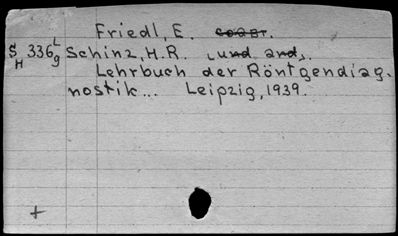 Friedl, E. coaut.
S H 336 L g Schinz, H.R. [und and].
Lehrbuch der Röntgendiag-
nostik... Leipzig, 1939.
+